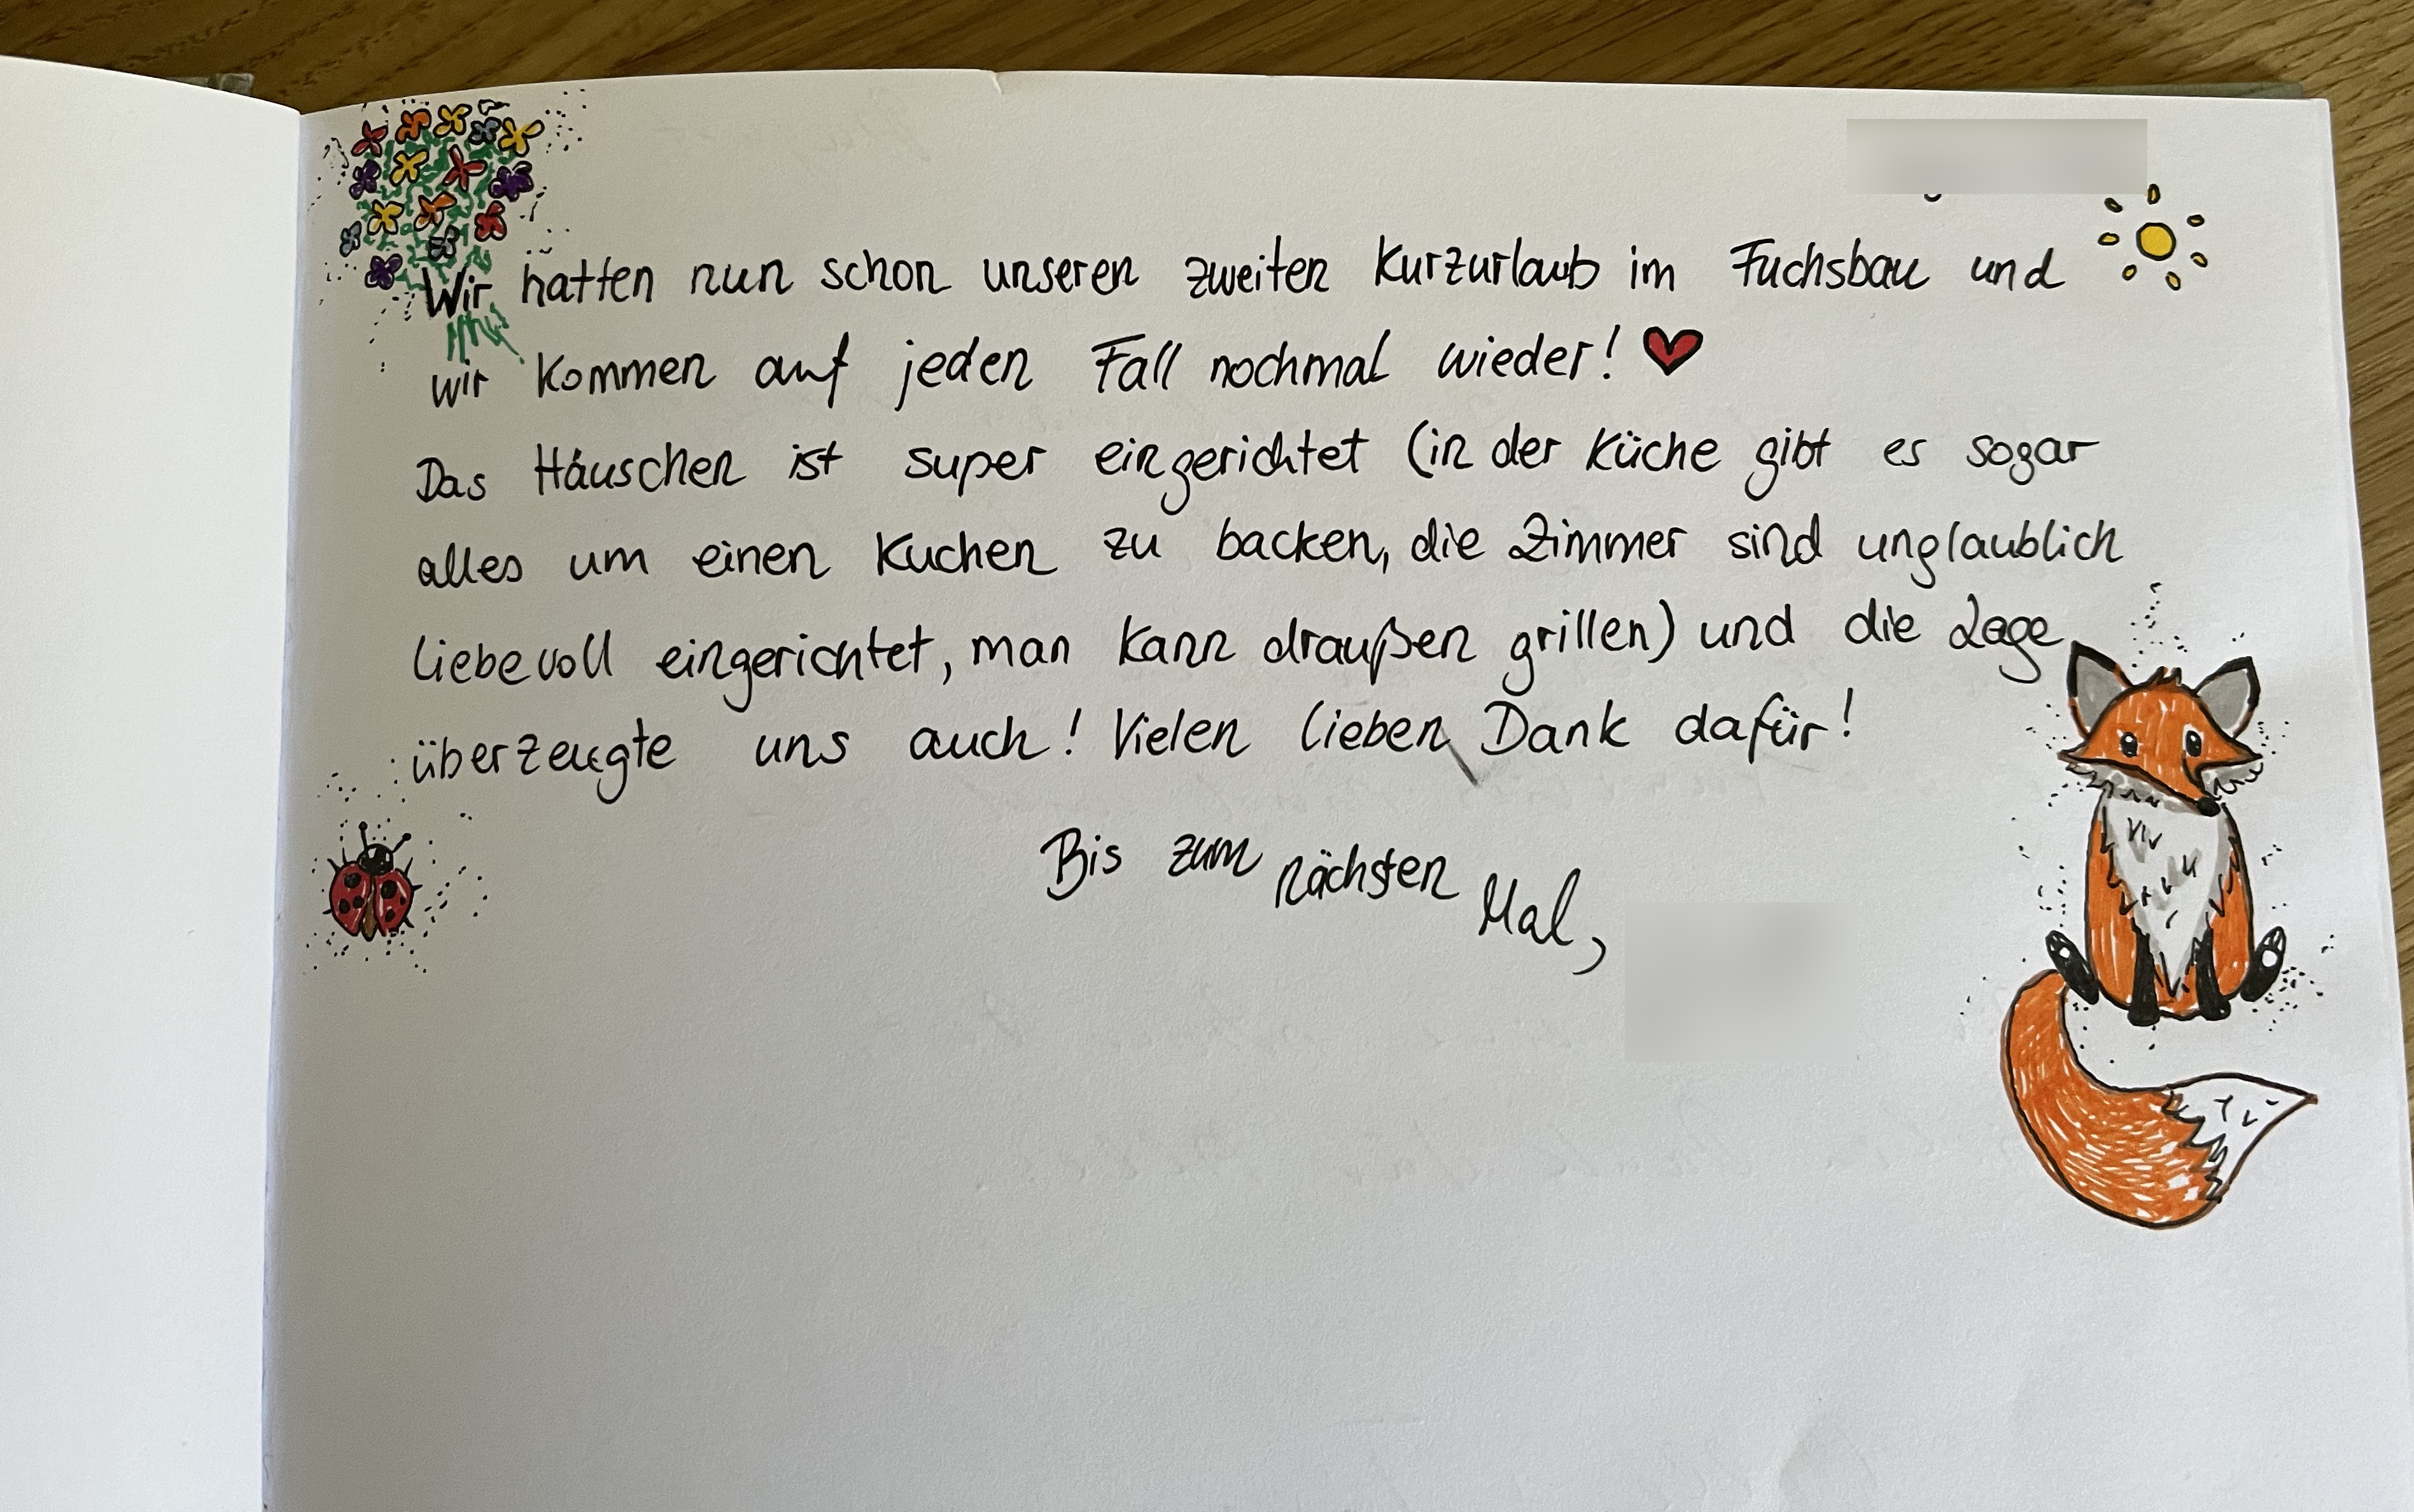 Wir hatten nun schon unseren zweiten Kurzurlaub im Fuchsbau und
wir kommen auf jeden Fall nochmal wieder! ❤
Das Häuschen ist super eingerichtet (in der Küche gibt es sogar
alles um einen Kuchen zu backen, die Zimmer sind unglaublich
liebevoll eingerichtet, man kann draußen grillen) und die Lage
überzeugte uns auch! Vielen lieben Dank dafür!
Bis zum nächsten Mal,